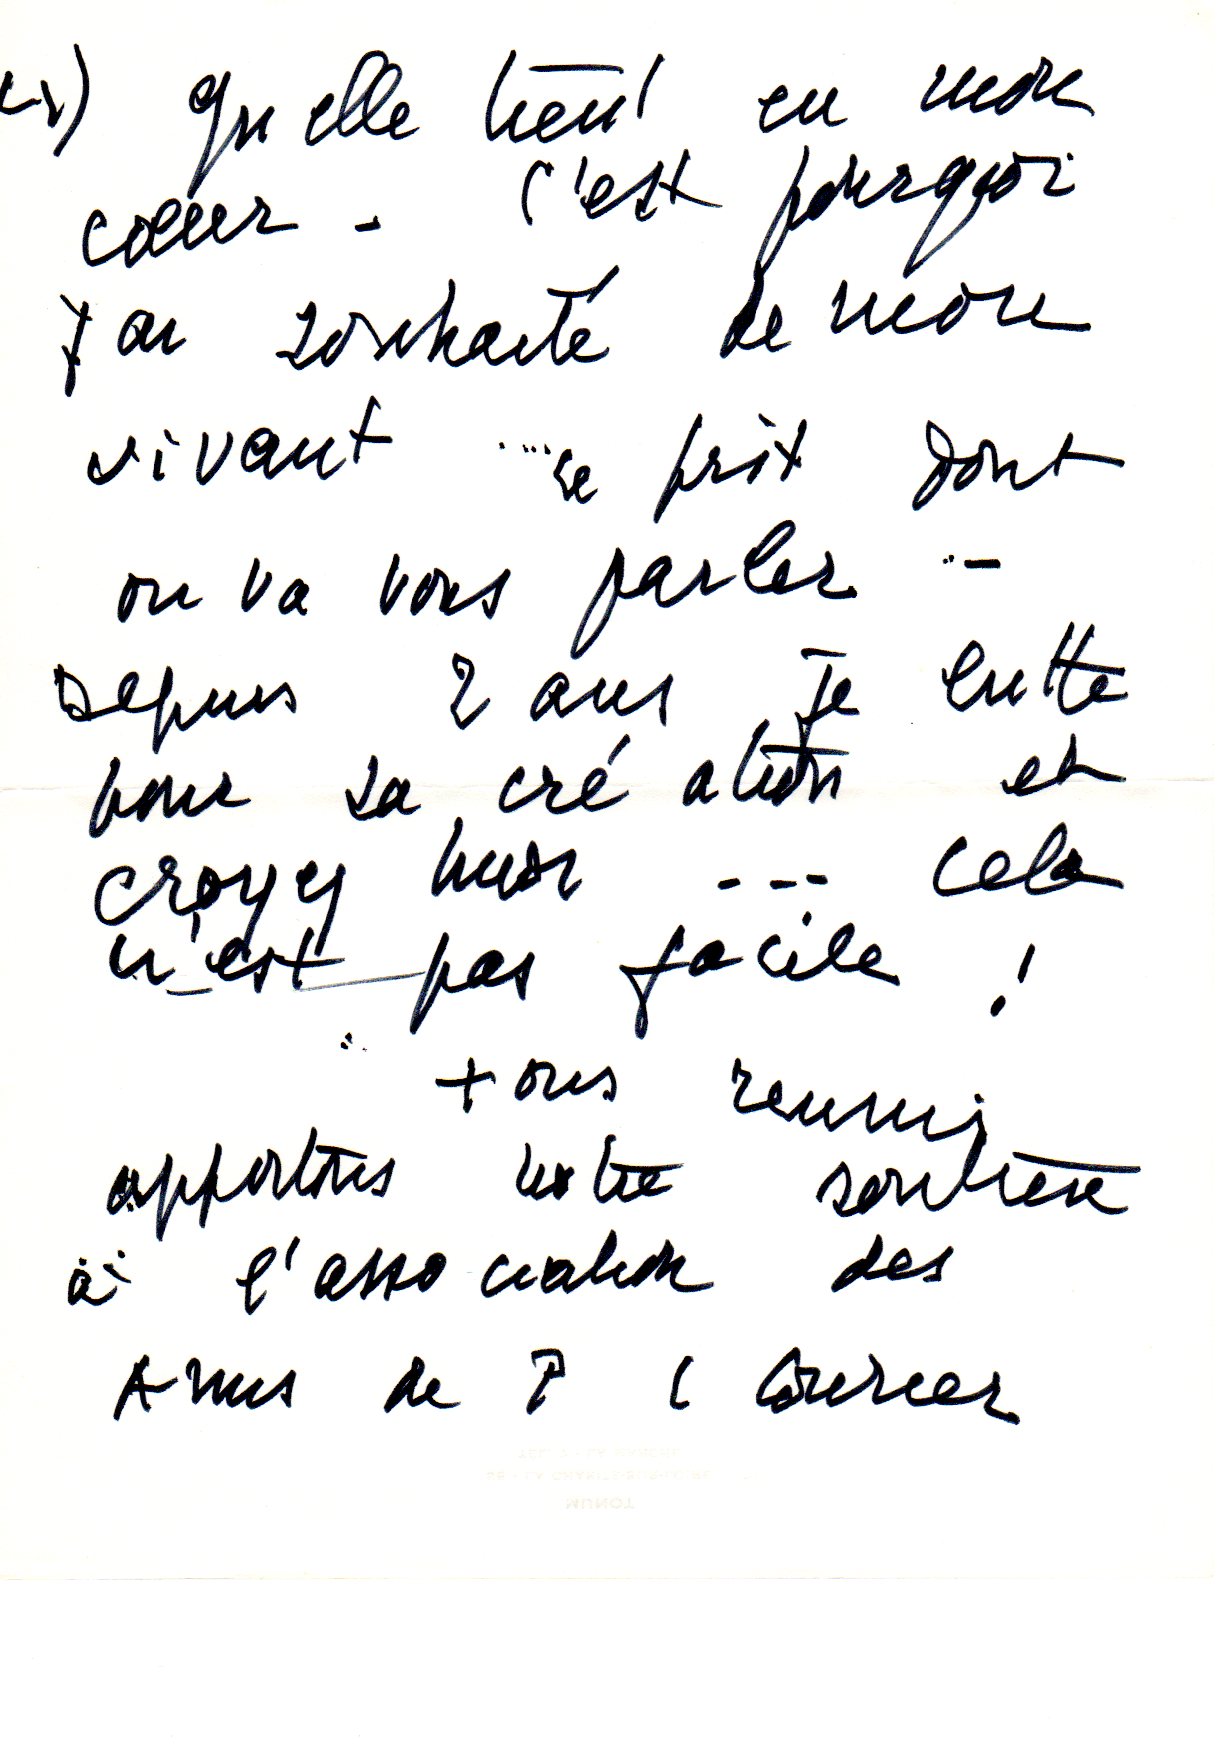 qu'elle tient en mon
cœur - C'est pourquoi
j'ai souhaité de mon
vivant ... ce prix dont
on va vous parler -
Depuis 2 ans je lutte
pour sa création et
croyez bien --- cela
n'est pas facile !
tous reunis
apportons notre soutien
à l'association des
Amis de P L Courier